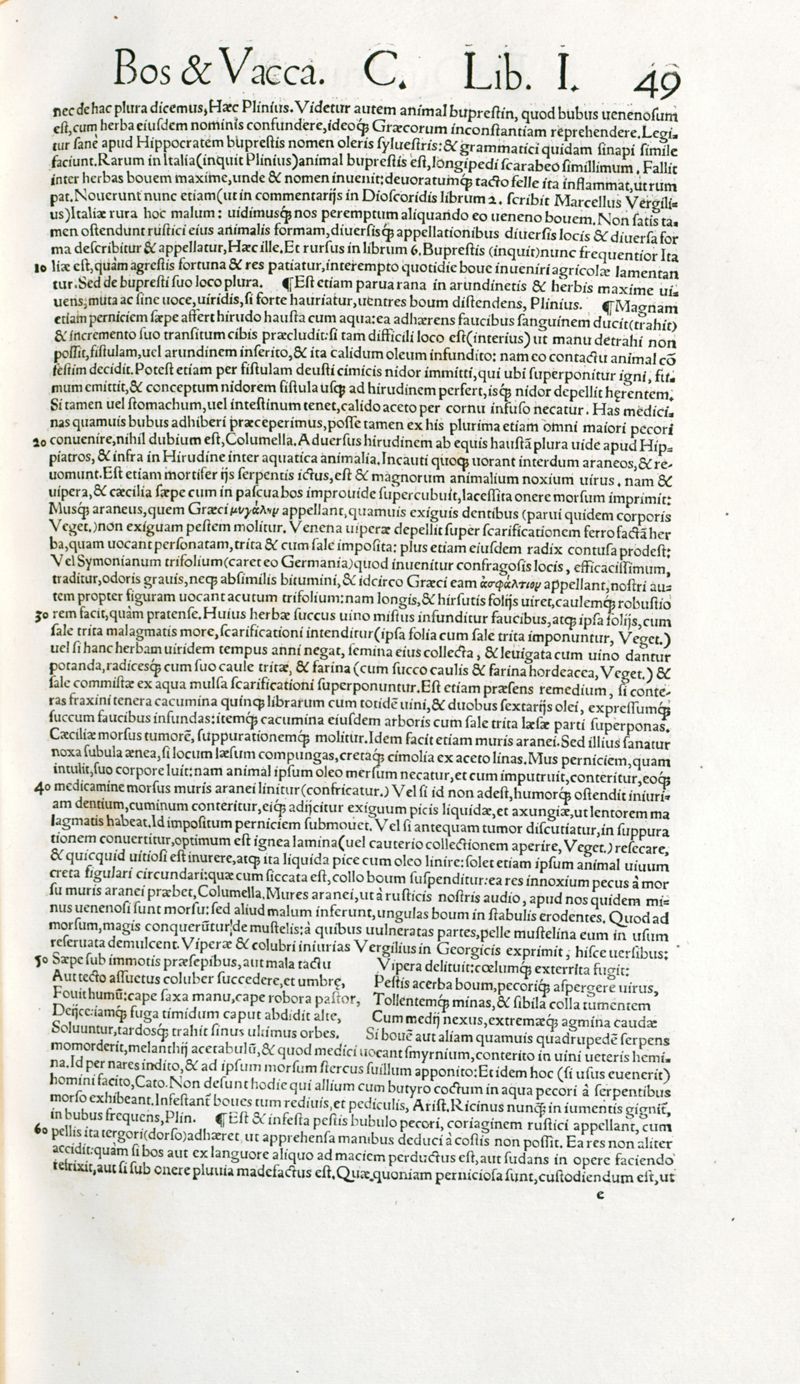 Bos & Vacca. C. Lib. I. 49
nec de hac plura dicemus, Hæc Plinius. Videtur autem animal buprestin, quod bubus uenenosum
est, cum herba eiusdem nominis confundere, ideoq́; Græcorum inconstantiam reprehendere. Legi-
tur sanè apud Hippocratem buprestis nomen oleris syluestris: & grammatici quidam sinapi simile
faciunt. Rarum in Italia (inquit Plinius) animal buprestis est, longipedi scarabeo simillimum. Fallit
inter herbas bouem maxime, unde & nomen inuenit: deuoratumq́; tacto felle ita inflammat, ut rum
pat. Nouerunt nunc etiam (ut in commentarijs in Dioscoridis librum 2. scribit Marcellus Vergili-
us) Italiæ rura hoc malum: uidimusq́; nos peremptum aliquando eo ueneno bouem. Non satis ta-
men ostendunt rustici eius animalis formam, diuersisq́; appellationibus diuersis locis & diuersa for
ma describitur & appellatur, Hæc ille. Et rursus in librum 6. Buprestis (inquit) nunc frequentior Ita
10 liæ est, quàm agrestis fortuna & res patiatur, interempto quotidie boue inueniri agricolæ lamentan
tur. Sed de bupresti suo loco plura. ¶ Est etiam parua rana in arundinetis & herbis maxime ui-
uens, muta ac sine uoce, uiridis, si forte hauriatur, uentres boum distendens, Plinius. ¶ Magnam
etiam perniciem sæpe affert hirudo hausta cum aqua: ea adhærens faucibus sanguinem ducit (trahit)
& incremento suo transitum cibis præcludit: si tam difficili loco est (interius) ut manu detrahi non
possit, fistulam, uel arundinem inserito, & ita calidum oleum infundito: nam eo contactu animal cõ
festim decidit. Potest etiam per fistulam deusti cimicis nidor immitti, qui ubi superponitur igni, fu-
mum emittit, & conceptum nidorem fistula usq́; ad hirudinem perfert, isq́; nidor depellit herentem.
Si tamen uel stomachum, uel intestinum tenet, calido aceto per cornu infuso necatur. Has medici-
nas quamuis bubus adhiberi præceperimus, posse tamen ex his plurima etiam omni maiori pecori
20 conuenire, nihil dubium est, Columella. Aduersus hirudinem ab equis haustã plura uide apud Hip-
piatros, & infra in Hirudine inter aquatica animalia. Incauti quoq́; uorant interdum araneos, & re-
uomunt. Est etiam mortifer ijs serpentis ictus, est & magnorum animalium noxium uirus. nam &
uipera, & cæcilia sæpe cum in pascua bos improuide supercubuit, lacessita onere morsum imprimit:
Musq́; araneus, quem Græci μυγάλην appellant, quamuis exiguis dentibus (parui quidem corporis
Veget.) non exiguam pestem molitur. Venena uiperæ depellit super scarificationem ferro factã her
ba, quam uocant personatam, trita & cum sale imposita: plus etiam eiusdem radix contusa prodest:
Vel Symonianum trifolium (caret eo Germania) quod inuenitur confragosis locis, efficacissimum,
traditur, odoris grauis, neq́; absimilis bitumini, & idcirco Græci eam ἀσφάλτιον appellant, nostri au-
tem propter figuram uocant acutum trifolium: nam longis, & hirsutis folijs uiret, caulemq́; robustio
30 rem facit, quàm pratense. Huius herbæ succus uino mistus infunditur faucibus, atq́; ipsa folijs, cum
sale trita malagmatis more, scarificationi intenditur (ipsa folia cum sale trita imponuntur, Veget.)
uel si hanc herbam uiridem tempus anni negat, semina eius collecta, & leuigata cum uino dantur
potanda, radicesq́; cum suo caule tritæ, & farina (cum succo caulis & farina hordeacea, Veget.) &
sale commistæ ex aqua mulsa scarificationi superponuntur. Est etiam præsens remedium, si conte-
ras fraxini tenera cacumina quinq́; librarum cum totidẽ uini, & duobus sextarijs olei, expressumq́;
succum faucibus infundas: itemq́; cacumina eiusdem arboris cum sale trita læsæ parti superponas.
Cæciliæ morsus tumorẽ, suppurationemq́; molitur. Idem facit etiam muris aranei. Sed illius sanatur
noxa subula ænea, si locum læsum compungas, cretaq́; cimolia ex aceto linas. Mus perniciem, quam
intulit, suo corpore luit: nam animal ipsum oleo mersum necatur, et cum imputruit, conteritur, eoq́;
40 medicamine morsus muris aranei linitur (confricatur.) Vel si id non adest, humorq́; ostendit iniuri-
am dentium, cuminum conteritur, eiq́; adijcitur exiguum picis liquidæ, et axungiæ, ut lentorem ma
lagmatis habeat. Id impositum perniciem submouet. Vel si antequam tumor discutiatur, in suppura
tionem conuertitur, optimum est ignea lamina (uel cauterio collectionem aperire, Veget.) resecare,
& quicquid uitiosi est inurere, atq́; ita liquida pice cum oleo linire: solet etiam ipsum animal uiuum
creta figulari circundari: quæ cum siccata est, collo boum suspenditur: ea res innoxium pecus à mor
su muris aranei præbet, Columella. Mures aranei, ut à rusticis nostris audio, apud nos quidem mi-
nus uenenosi sunt morsu: sed aliud malum inferunt, ungulas boum in stabulis erodentes. Quod ad
morsum, magis conquerũtur de mustelis: à quibus uulneratas partes, pelle mustelina eum in usum
reseruata demulcent. Viperæ & colubri iniurias Vergilius in Georgicis exprimit, hisce uersibus:
50 Sæpe sub immotis præsepibus, aut mala tactu Vipera delituit: cœlumq́; exterrita fugit:
Aut tecto assuetus coluber succedere, et umbræ, Pestis acerba boum, pecoriq́; aspergere uirus,
Fouit humũ: cape saxa manu, cape robora pastor, Tollentemq́; minas, & sibila colla tumentem
Deijce: iamq́; fuga timidum caput abdidit alte, Cum medij nexus, extremæq́; agmina caudæ
Soluuntur, tardosq́; trahit sinus ultimus orbes. Si bouẽ aut aliam quamuis quadrupedẽ serpens
momorderit, melanthij acetabulũ, & quod medici uocant smyrnium, conterito in uini ueteris hemi-
na. Id per nares indito, & ad ipsum morsum stercus suillum apponito: Et idem hoc (si usus euenerit)
homini facito, Cato. Non desunt hodie qui allium cum butyro coctum in aqua pecori à serpentibus
morso exhibeant. Infestant boues tum rediuis, et pediculis, Arist. Ricinus nunq́; in iumentis gignit̃,
in bubus frequens, Plin. ¶ Est & infesta pestis bubulo pecori, coriaginem rustici appellant, cum
60 pellis ita tergori (dorso) adhæret, ut apprehensa manibus deduci à costis non possit. Ea res non aliter
accidit: quam si bos aut ex languore aliquo ad maciem perductus est, aut sudans in opere faciendo
refrixit, aut si sub onere pluuia madefactus est. Quæ quoniam perniciosa sunt, custodiendum est, ut
e